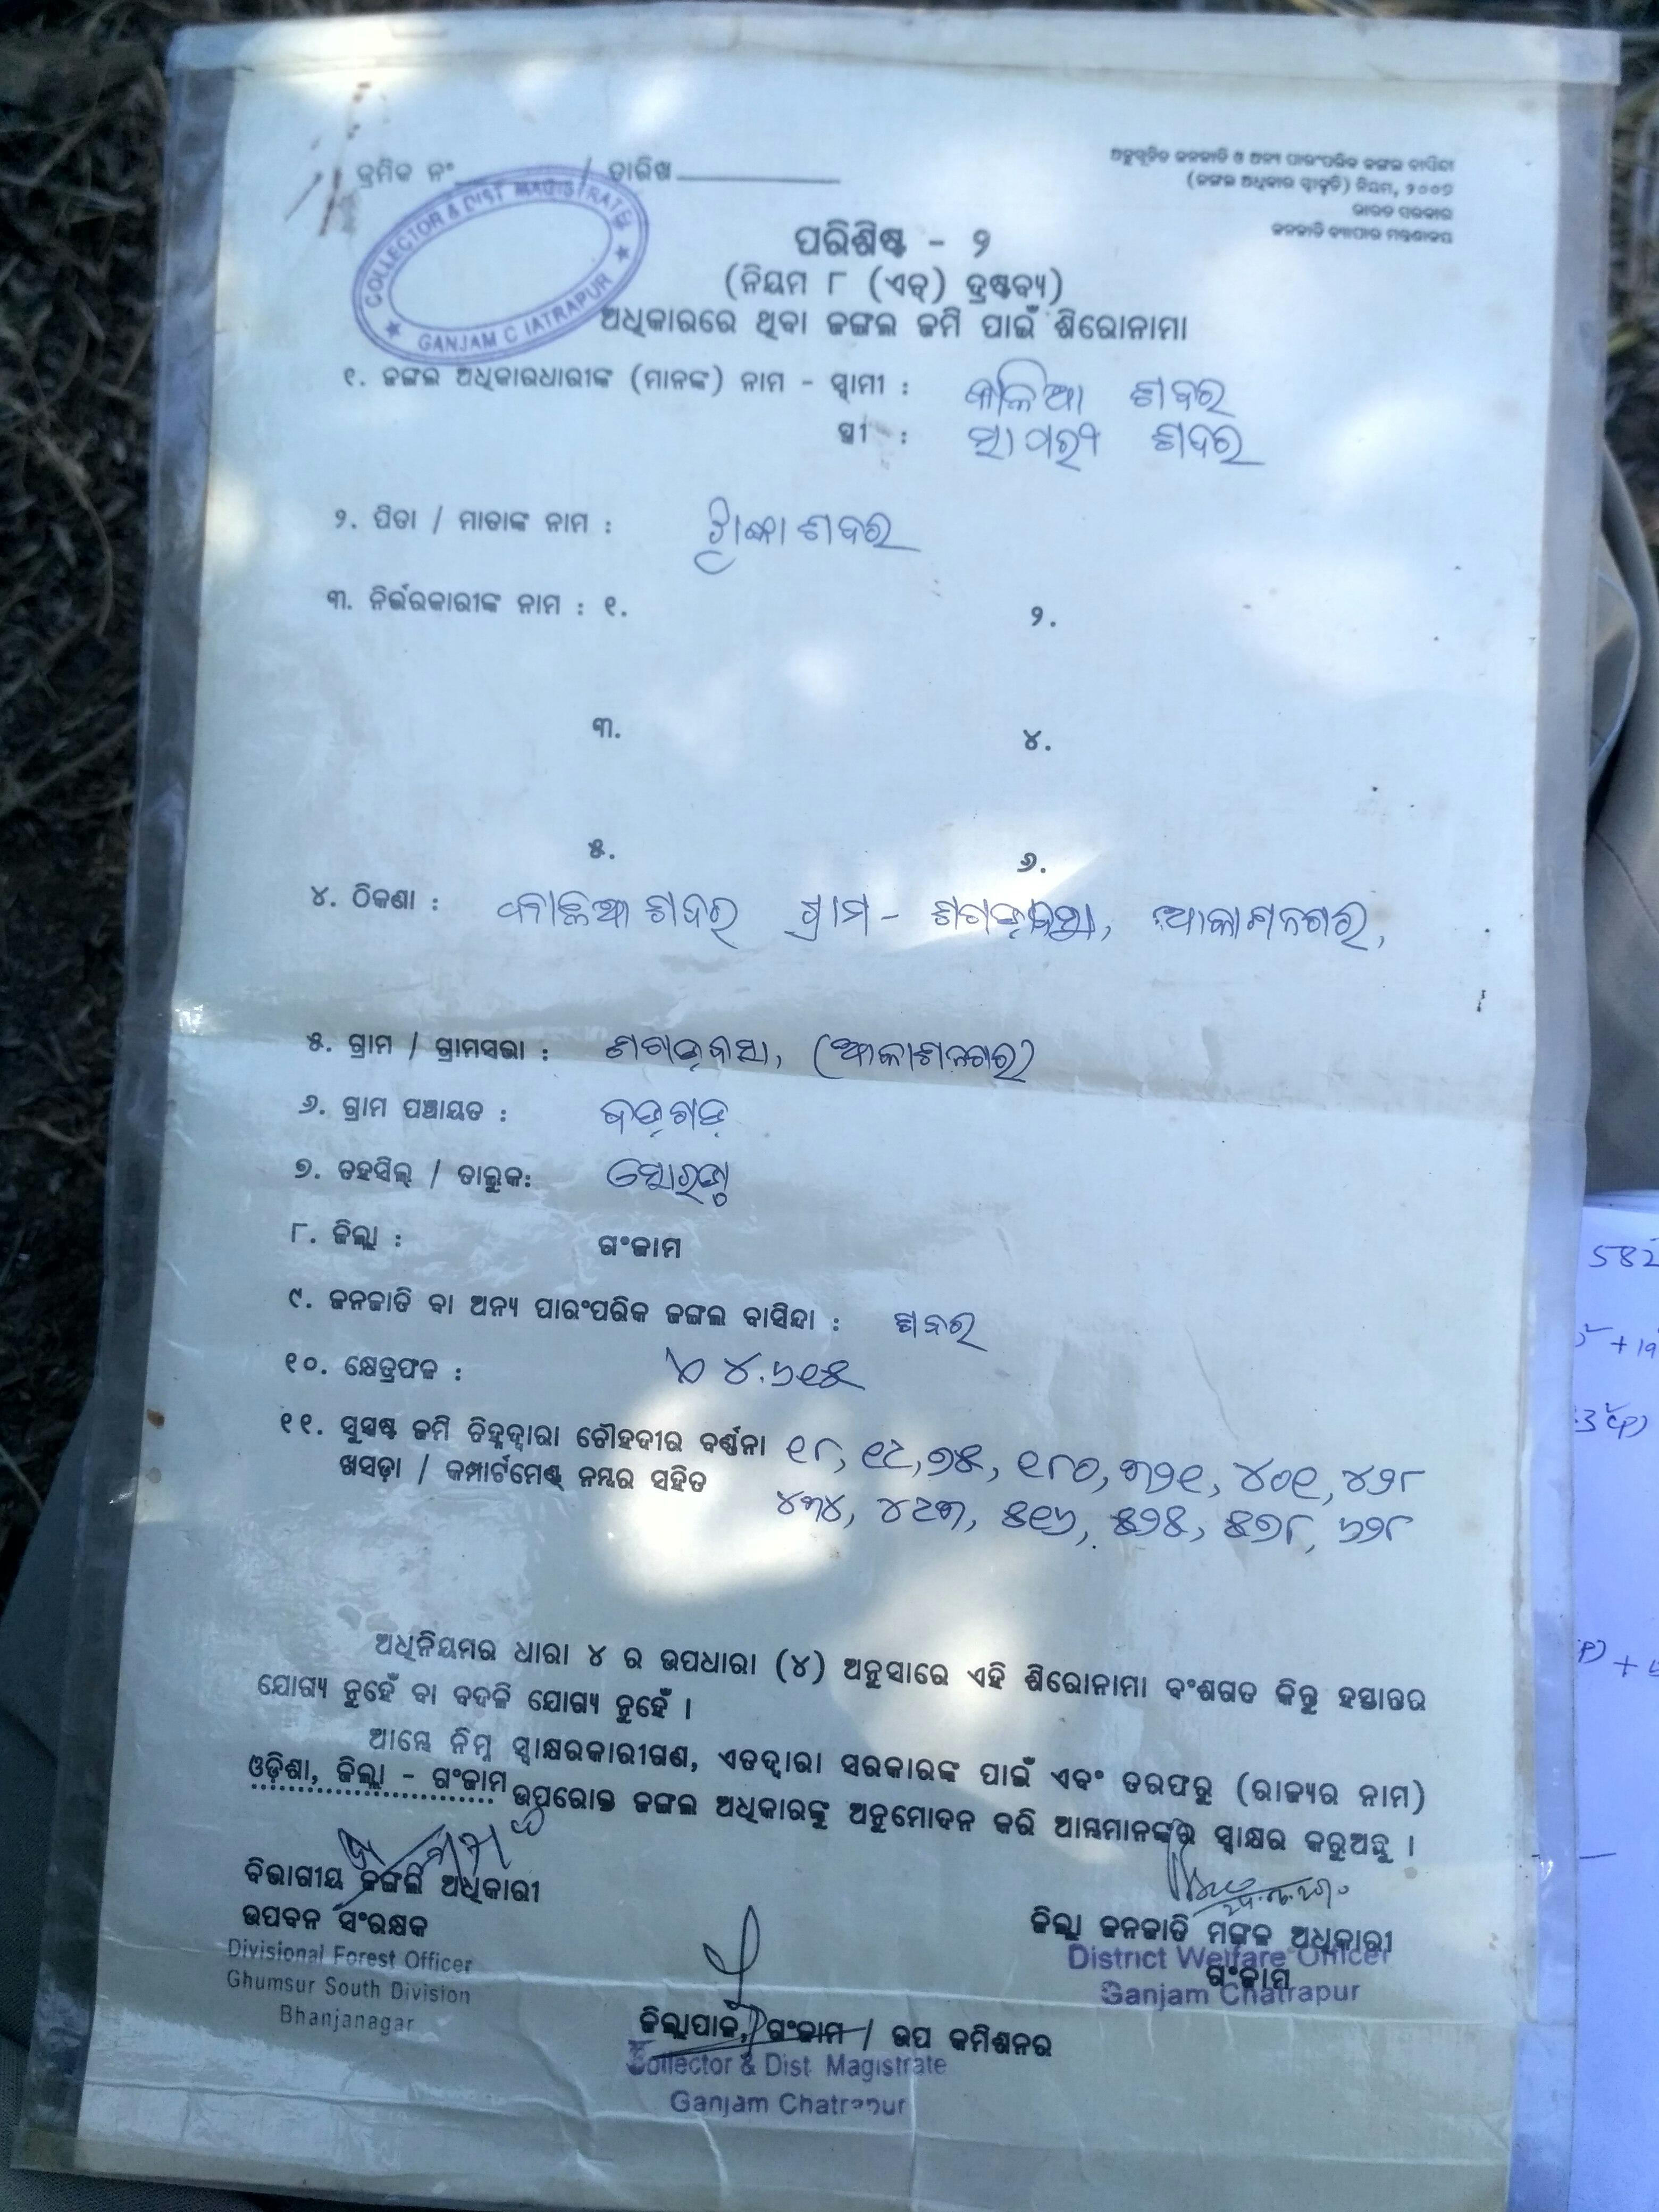 କ୍ରମିକ ନଂ / ତାରିଖ
ଅନୁସୂଚିତ ଜନଜାତି ଓ ଅନ୍ୟ ପାରଂପରିକ ଜଙ୍ଗଲ ବାସିନ୍ଦା
(ଜଙ୍ଗଲ ଅଧିକାର ସ୍ୱୀକୃତି) ନିୟମ, ୨୦୦୭
ଭାରତ ସରକାର
ଜନଜାତି ବ୍ୟାପାର ମନ୍ତ୍ରଣାଳୟ
COLLECTOR & DIST MAGISTRATE
GANJAM C IATRAPUR
ପରିଶିଷ୍ଟ - ୨
(ନିୟମ ୮ (ଏଚ୍) ଦ୍ରଷ୍ଟବ୍ୟ)
ଅଧିକାରରେ ଥିବା ଜଙ୍ଗଲ ଜମି ପାଇଁ ଶିରୋନାମା
୧. ଜଙ୍ଗଲ ଅଧିକାରଧାରୀଙ୍କ (ମାନଙ୍କ) ନାମ - ସ୍ୱାମୀ : କାଳିଆ ଶବର
ସ୍ତ୍ରୀ : ଶବର
୨. ପିତା / ମାତାଙ୍କ ନାମ : ଶବର
୩. ନିର୍ଭରକାରୀଙ୍କ ନାମ : ୧. ୨.
୩. ୪.
୫. ୬.
୪. ଠିକଣା : କାଳିଆ ଶବର ଗ୍ରାମ - ଆକାଶନଗର,
୫. ଗ୍ରାମ / ଗ୍ରାମସଭା : (ଆକାଶନଗର)
୬. ଗ୍ରାମ ପଞ୍ଚାୟତ : ବଡ଼ଗଡ଼
୭. ତହସିଲ୍ / ତାଲୁକ: ସୋରଡ଼ା
୮. ଜିଲ୍ଲା : ଗଂଜାମ
୯. ଜନଜାତି ବା ଅନ୍ୟ ପାରଂପରିକ ଜଙ୍ଗଲ ବାସିନ୍ଦା : ଶବର
୧୦. କ୍ଷେତ୍ରଫଳ : ୪.୬୧୫
୧୧. ସୁସ୍ପଷ୍ଟ ଜମି ଚିହ୍ନଦ୍ୱାରା ଚୌହଦୀର ବର୍ଣ୍ଣନା ୧୮, ୧୯, ୭୫, ୧୮୦, ୩୨୧, ୪୦୧, ୪୨୮
ଖସଡ଼ା / କମ୍ପାର୍ଟମେଣ୍ଟ୍ ନମ୍ବର ସହିତ ୪୩୪, ୪୯୩, ୫୧୬, ୫୨୫, ୫୭୮, ୬୨୮
ଅଧିନିୟମର ଧାରା ୪ ର ଉପଧାରା (୪) ଅନୁସାରେ ଏହି ଶିରୋନାମା ବଂଶଗତ କିନ୍ତୁ ହସ୍ତାନ୍ତର
ଯୋଗ୍ୟ ନୁହେଁ ବା ବଦଳି ଯୋଗ୍ୟ ନୁହେଁ ।
ଆମ୍ଭେ ନିମ୍ନ ସ୍ୱାକ୍ଷରକାରୀଗଣ, ଏତଦ୍ୱାରା ସରକାରଙ୍କ ପାଇଁ ଏବଂ ତରଫରୁ (ରାଜ୍ୟର ନାମ)
ଓଡ଼ିଶା, ଜିଲ୍ଲା - ଗଂଜାମ ଉପରୋକ୍ତ ଜଙ୍ଗଲ ଅଧିକାରଙ୍କୁ ଅନୁମୋଦନ କରି ଆମ୍ଭମାନଙ୍କର ସ୍ୱାକ୍ଷର କରୁଅଛୁ ।
ବିଭାଗୀୟ ଜଙ୍ଗଲ ଅଧିକାରୀ
ଉପବନ ସଂରକ୍ଷକ
Divisional Forest Officer
Ghumsur South Division
Bhanjanagar
ଜିଲ୍ଲା ଜନଜାତି ମଙ୍ଗଳ ଅଧିକାରୀ
District Welfare Officer
ଗଂଜାମ
Ganjam Chatrapur
ଜିଲ୍ଲାପାଳ, ଗଂଜାମ / ଉପ କମିଶନର
Collector & Dist. Magistrate
Ganjam Chatrapur
582